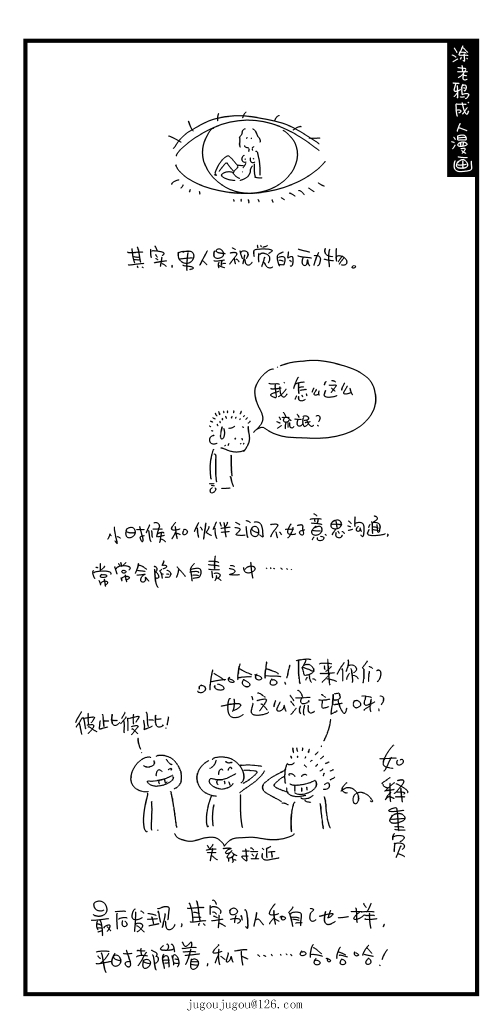 涂老鸦成人漫画
其实,男人是视觉的动物。
我怎么这么
流氓?
小时候和伙伴之间不好意思沟通,
常常会陷入自责之中……
哈哈哈!原来你们
也这么流氓呀?
彼此彼此!
如释重负
关系拉近
最后发现,其实别人和自己也一样,
平时都崩着,私下……哈哈哈!
jugoujugou@126.com